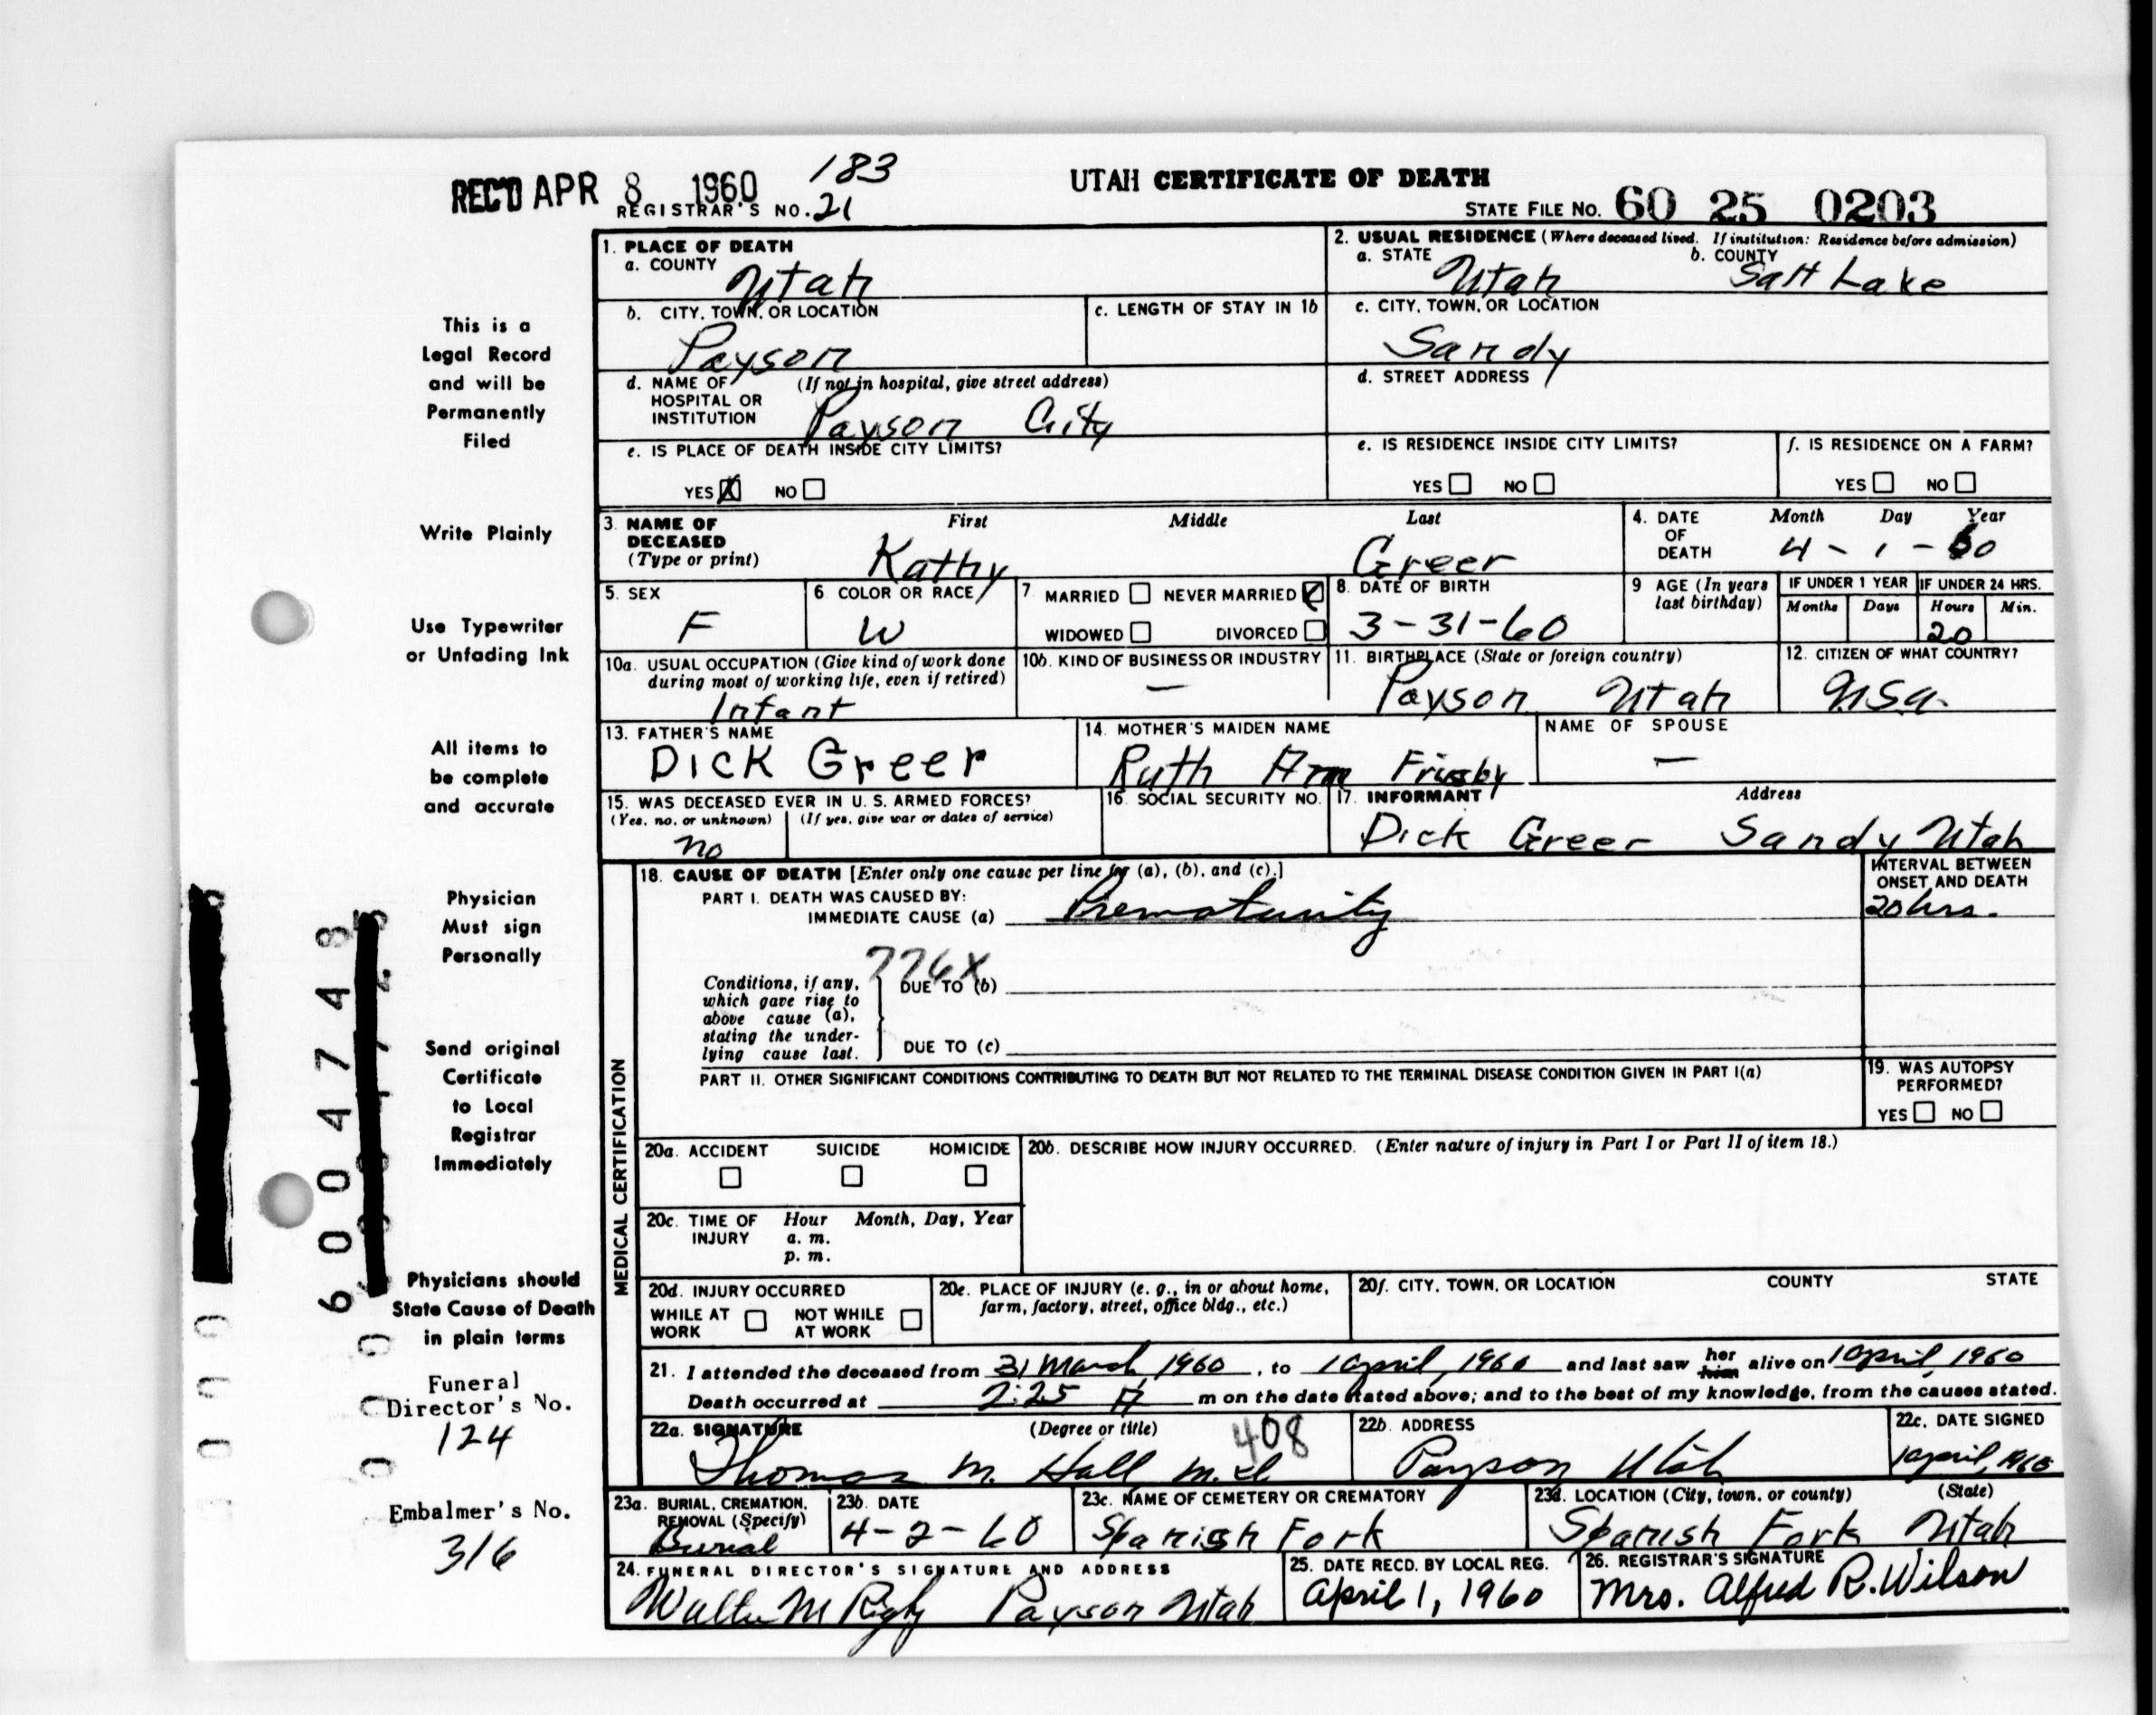 REC'D APR 8 1960 183
REGISTRAR'S NO. 21
UTAH CERTIFICATE OF DEATH
STATE FILE NO. 60 25 0203
This is a
Legal Record
and will be
Permanently
Filed
Write Plainly
Use Typewriter
or Unfading Ink
All items to
be complete
and accurate
Physician
Must sign
Personally
Send original
Certificate
to Local
Registrar
Immediately
Physicians should
State Cause of Death
in plain terms
Funeral
Director's No.
124
Embalmer's No.
316
6004748
1. PLACE OF DEATH
a. COUNTY Utah
2. USUAL RESIDENCE (Where deceased lived. If institution: Residence before admission)
a. STATE Utah b. COUNTY Salt Lake
b. CITY, TOWN, OR LOCATION Payson
c. LENGTH OF STAY IN 1b
c. CITY, TOWN, OR LOCATION Sandy
d. NAME OF (If not in hospital, give street address)
HOSPITAL OR
INSTITUTION Payson City
d. STREET ADDRESS
e. IS PLACE OF DEATH INSIDE CITY LIMITS?
YES X NO
e. IS RESIDENCE INSIDE CITY LIMITS?
YES NO
f. IS RESIDENCE ON A FARM?
YES NO
3. NAME OF DECEASED (Type or print) First Middle Last
Kathy Greer
4. DATE OF DEATH Month Day Year
4-1-60
5. SEX F
6 COLOR OR RACE W
7. MARRIED NEVER MARRIED ✓
WIDOWED DIVORCED
8. DATE OF BIRTH 3-31-60
9 AGE (In years last birthday)
IF UNDER 1 YEAR Months Days
IF UNDER 24 HRS. Hours 20 Min.
10a. USUAL OCCUPATION (Give kind of work done
during most of working life, even if retired)
Infant
10b. KIND OF BUSINESS OR INDUSTRY —
11. BIRTHPLACE (State or foreign country)
Payson Utah
12. CITIZEN OF WHAT COUNTRY?
USA.
13. FATHER'S NAME
Dick Greer
14. MOTHER'S MAIDEN NAME
Ruth Ann Frisby
NAME OF SPOUSE
—
15. WAS DECEASED EVER IN U. S. ARMED FORCES?
(Yes, no, or unknown) (If yes, give war or dates of service)
no
16. SOCIAL SECURITY NO.
17. INFORMANT Address
Dick Greer Sandy Utah
MEDICAL CERTIFICATION
18. CAUSE OF DEATH [Enter only one cause per line for (a), (b), and (c).]
PART I. DEATH WAS CAUSED BY:
IMMEDIATE CAUSE (a) Prematurity
INTERVAL BETWEEN
ONSET AND DEATH
20 hrs.
776X
Conditions, if any,
which gave rise to
above cause (a),
stating the under-
lying cause last.
DUE TO (b)
DUE TO (c)
PART II. OTHER SIGNIFICANT CONDITIONS CONTRIBUTING TO DEATH BUT NOT RELATED TO THE TERMINAL DISEASE CONDITION GIVEN IN PART I(a)
19. WAS AUTOPSY
PERFORMED?
YES NO
20a. ACCIDENT SUICIDE HOMICIDE
20b. DESCRIBE HOW INJURY OCCURRED. (Enter nature of injury in Part I or Part II of item 18.)
20c. TIME OF INJURY Hour Month, Day, Year
a. m.
p. m.
20d. INJURY OCCURRED
WHILE AT WORK NOT WHILE AT WORK
20e. PLACE OF INJURY (e. g., in or about home,
farm, factory, street, office bldg., etc.)
20f. CITY, TOWN, OR LOCATION COUNTY STATE
21. I attended the deceased from 31 March, 1960, to 1 April, 1960 and last saw her him alive on 1 April, 1960
Death occurred at 2:25 A m on the date stated above; and to the best of my knowledge, from the causes stated.
22a. SIGNATURE (Degree or title) 408
Thomas M. Hall M.D
22b. ADDRESS
Payson Utah
22c. DATE SIGNED
1 April, 1960
23a. BURIAL, CREMATION,
REMOVAL (Specify)
Burial
23b. DATE
4-2-60
23c. NAME OF CEMETERY OR CREMATORY
Spanish Fork
23d. LOCATION (City, town, or county) (State)
Spanish Fork Utah
24. FUNERAL DIRECTOR'S SIGNATURE AND ADDRESS
Walter M Rigby Payson Utah
25. DATE RECD. BY LOCAL REG.
April 1, 1960
26. REGISTRAR'S SIGNATURE
Mrs. Alfred R. Wilson